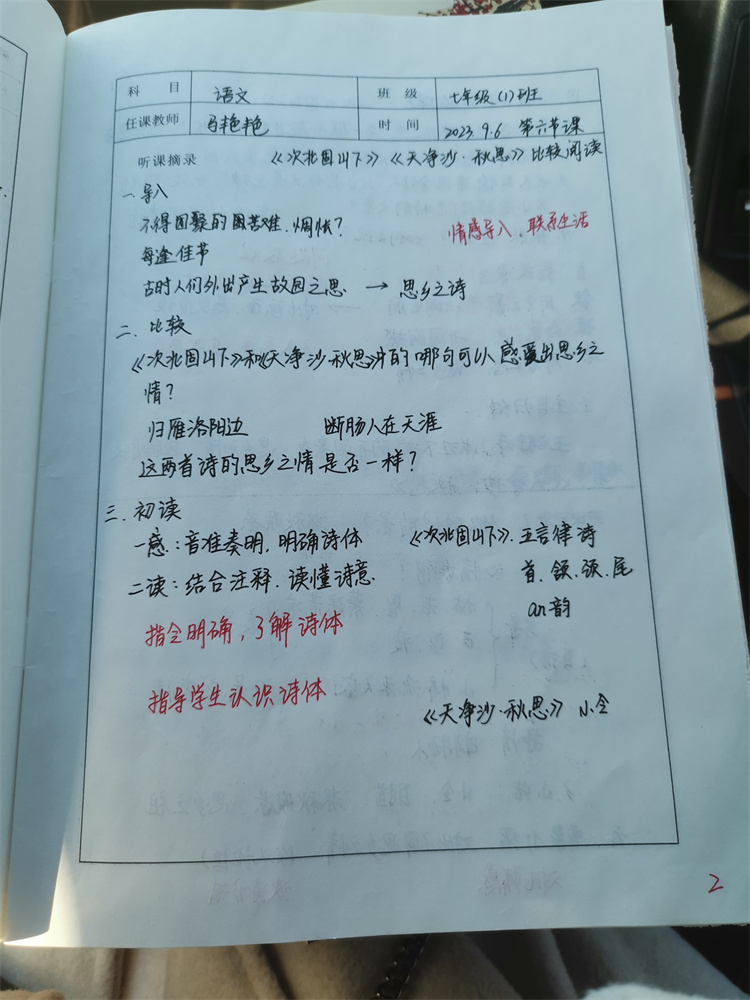 科 目 语文 班 级 七年级(1)班
任课教师 马艳艳 时 间 2023.9.6 第六节课
听课摘录 《次北固山下》《天净沙·秋思》比较阅读
一.导入
不得团聚的困苦难.惆怅?
情感导入.联系生活
每逢佳节
古时人们外出产生故园之思 → 思乡之诗
二.比较
《次北固山下》和《天净沙·秋思》中的哪句可以感受出思乡之
情?
归雁洛阳边 断肠人在天涯
这两首诗的思乡之情是否一样?
三.初读
一感:音准奏明,明确诗体 《次北固山下》.五言律诗
二读:结合注释.读懂诗意 首、颔、颈、尾
an韵
指令明确,了解诗体
指导学生认识诗体
《天净沙·秋思》 小令
2